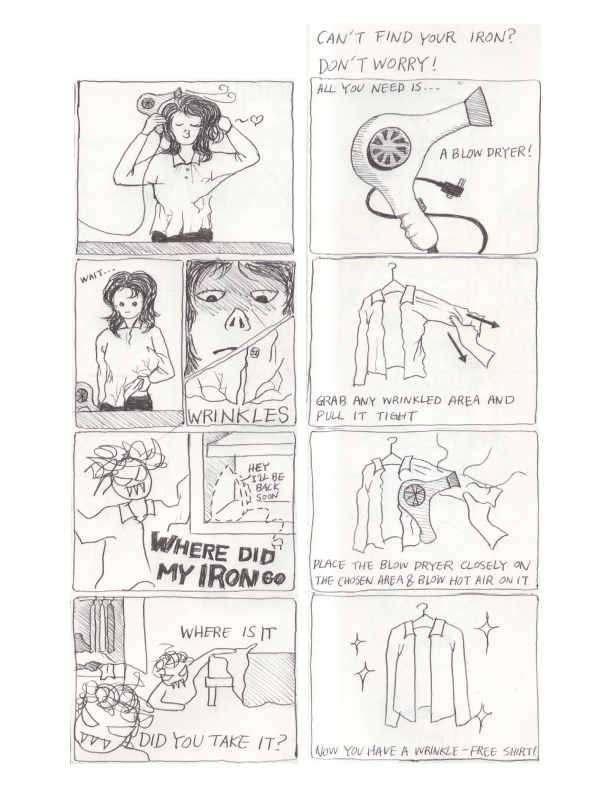 WAIT...
WRINKLES
HEY
I'LL BE
BACK
SOON
WHERE DID
MY IRON GO
WHERE IS IT
DID YOU TAKE IT?
CAN'T FIND YOUR IRON?
DON'T WORRY!
ALL YOU NEED IS...
A BLOW DRYER!
GRAB ANY WRINKLED AREA AND
PULL IT TIGHT
PLACE THE BLOW DRYER CLOSELY ON
THE CHOSEN AREA & BLOW HOT AIR ON IT
NOW YOU HAVE A WRINKLE-FREE SHIRT!